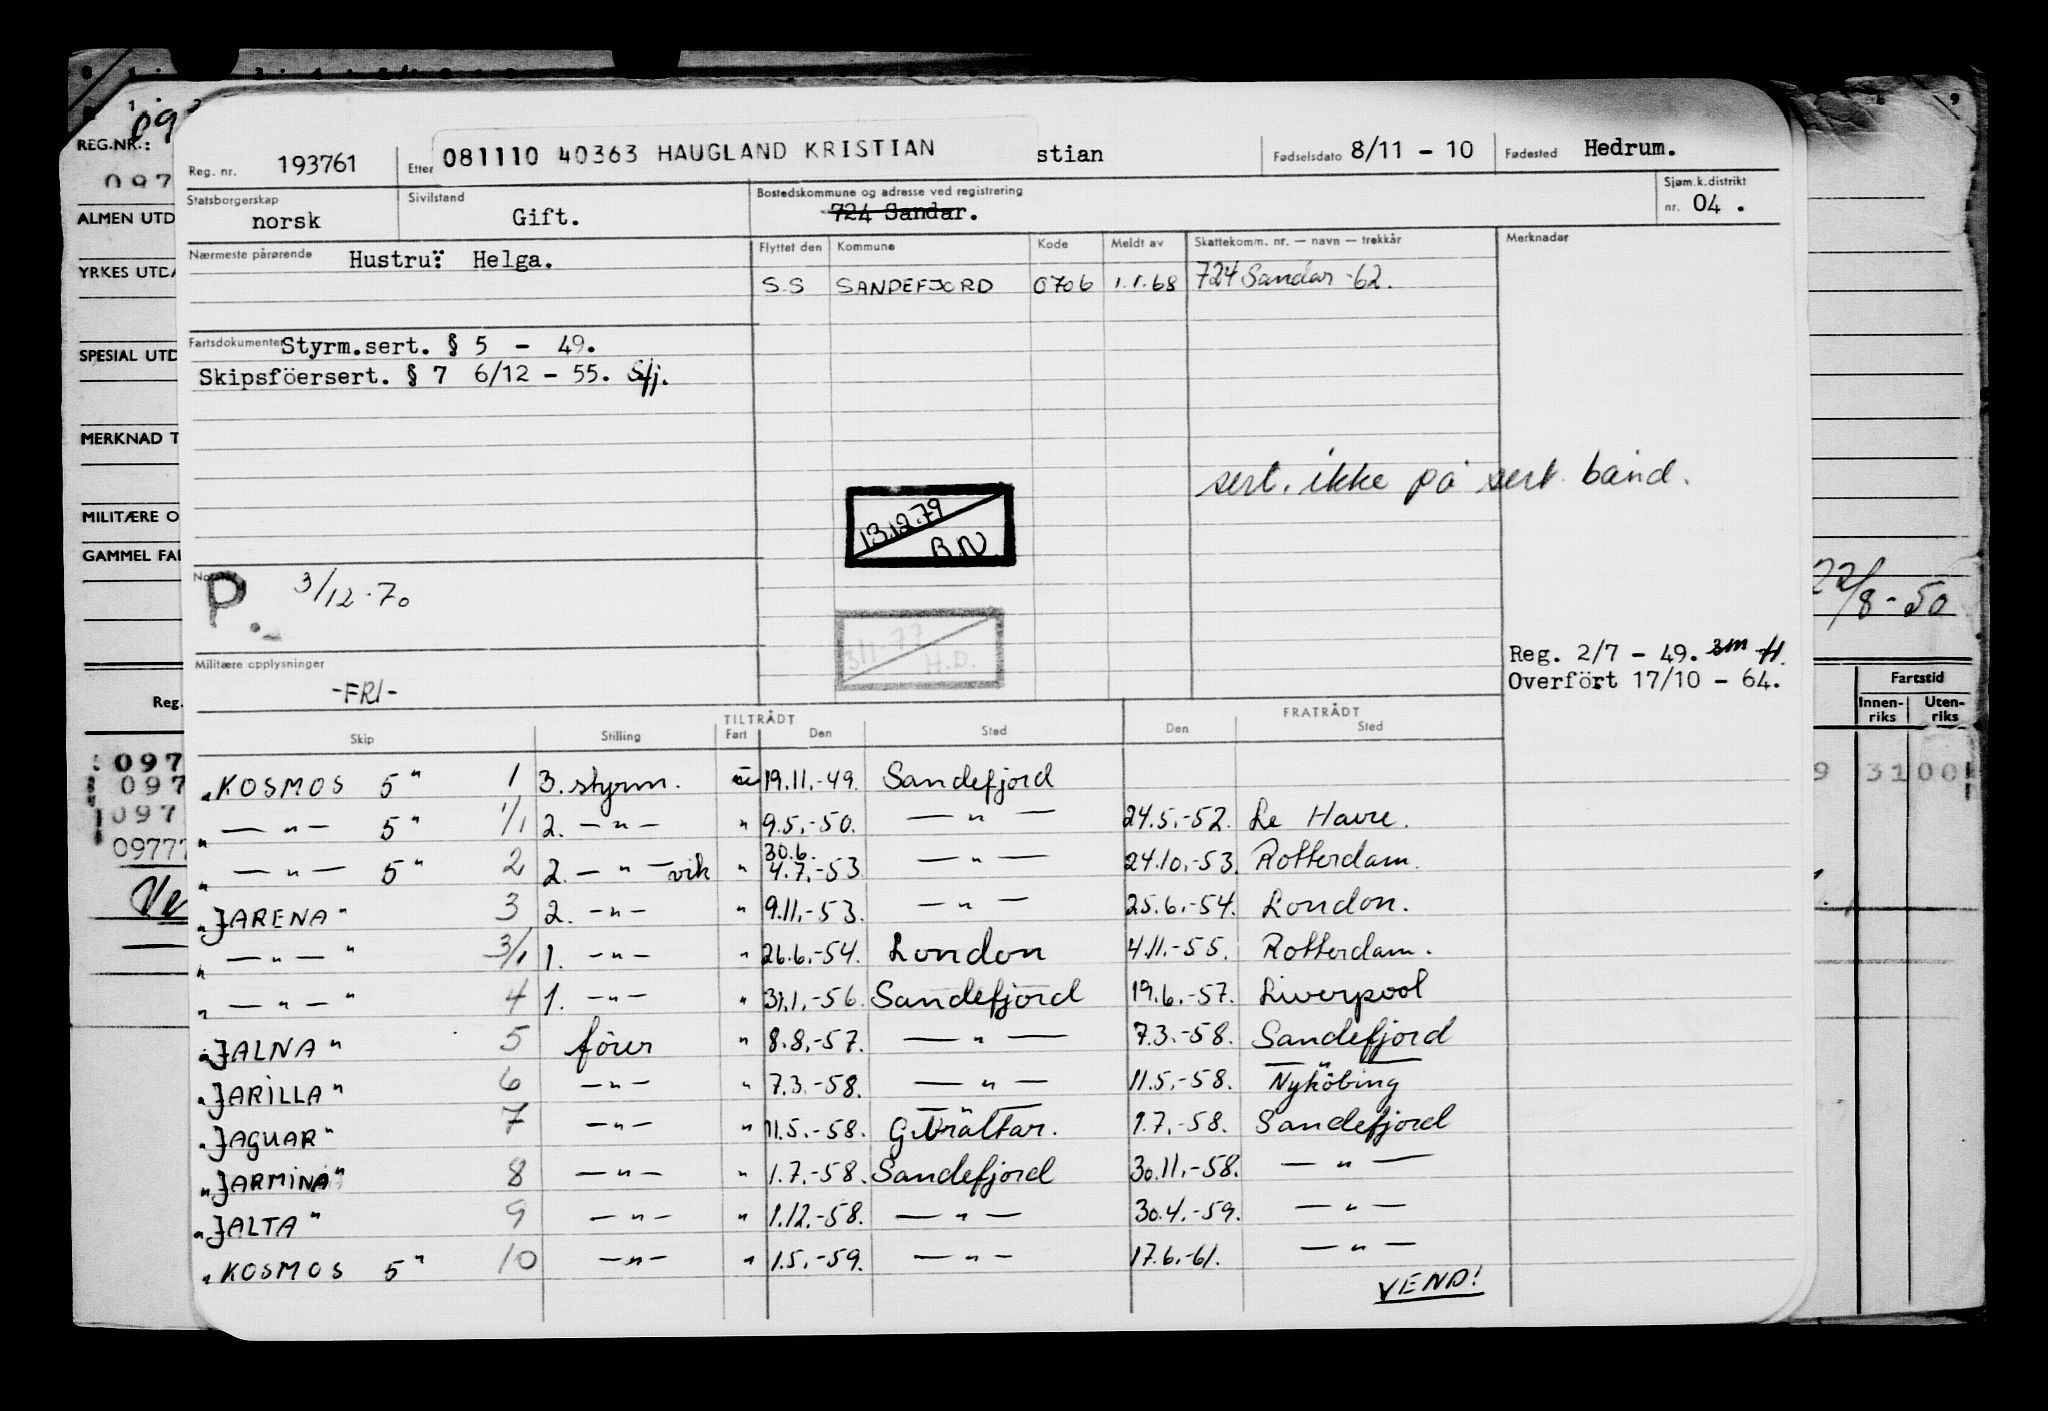 REG.NR.:
ALMEN UTD
YRKES UTDA
SPESIAL UTD
MERKNAD T
MILITÆRE O
GAMMEL FA
Reg.
097
097
097
09777
Reg. nr. 193761 Etter 081110 40363 HAUGLAND KRISTIAN stian Fødselsdato 8/11 - 10 Fødested Hedrum.
Statsborgerskap norsk Sivilstand Gift. Bostedskommune og adresse ved registrering 724 Sandar. Sjøm.k.distrikt nr. 04 .
Nærmeste pårørende Hustru: Helga. Flyttet den Kommune Kode Meldt av Skattekomm. nr. — navn — trekkår Merknadar
S.S SANDEFJORD 0706 1.1.68 724 Sandar -62.
Fartsdokumenter Styrm.sert. § 5 - 49.
Skipsföersert. § 7 6/12 - 55. Sfj.
sert. ikke på sert. bånd.
13.12.79
B.N.
P. 3/12-70
3/1.77
H.D.
22/8-50
Militære opplysninger
-FRI-
Reg. 2/7 - 49.
Overfört 17/10 - 64.
Fartstid
Innen-riks Uten-riks
9 31 00
TILTRÅDT FRATRÅDT
Skip Stilling Fart Den Sted Den Sted
"KOSMOS 5" 1 3. styrm. u 19.11.-49. Sandefjord
" — " — 5" 1/1 2. — " — " 9.5.-50. — " — 24.5.-52. Le Havre.
" — " — 5" 2 2. — " — vik " 30.6. 4.7.-53 — " — 24.10.-53. Rotterdam.
"JARENA" 3 2. — " — " 9.11.-53. — " — 25.6.-54. London.
" — " — " 3/1 1. — " — " 26.6.-54. London 4.11.-55. Rotterdam.
" — " — " 4 1. — " — " 31.1.-56. Sandefjord 19.6.-57. Liverpool
"JALNA" 5 förer " 8.8.-57. — " — 7.3.-58. Sandefjord
"JARILLA" 6 — " — " 7.3.-58. — " — 11.5.-58. — " — Nyköbing
"JAGUAR" 7 — " — " 11.5.-58. — " — Gibraltar. 1.7.-58. Sandefjord
"JARMINA" 8 — " — " 1.7.-58. Sandefjord 30.11.-58. — " —
"JALTA" 9 — " — " 1.12.-58. — " — 30.4.-59. — " —
"KOSMOS 5" 10 — " — " 1.5.-59. — " — 17.6.-61. — " —
VEND!